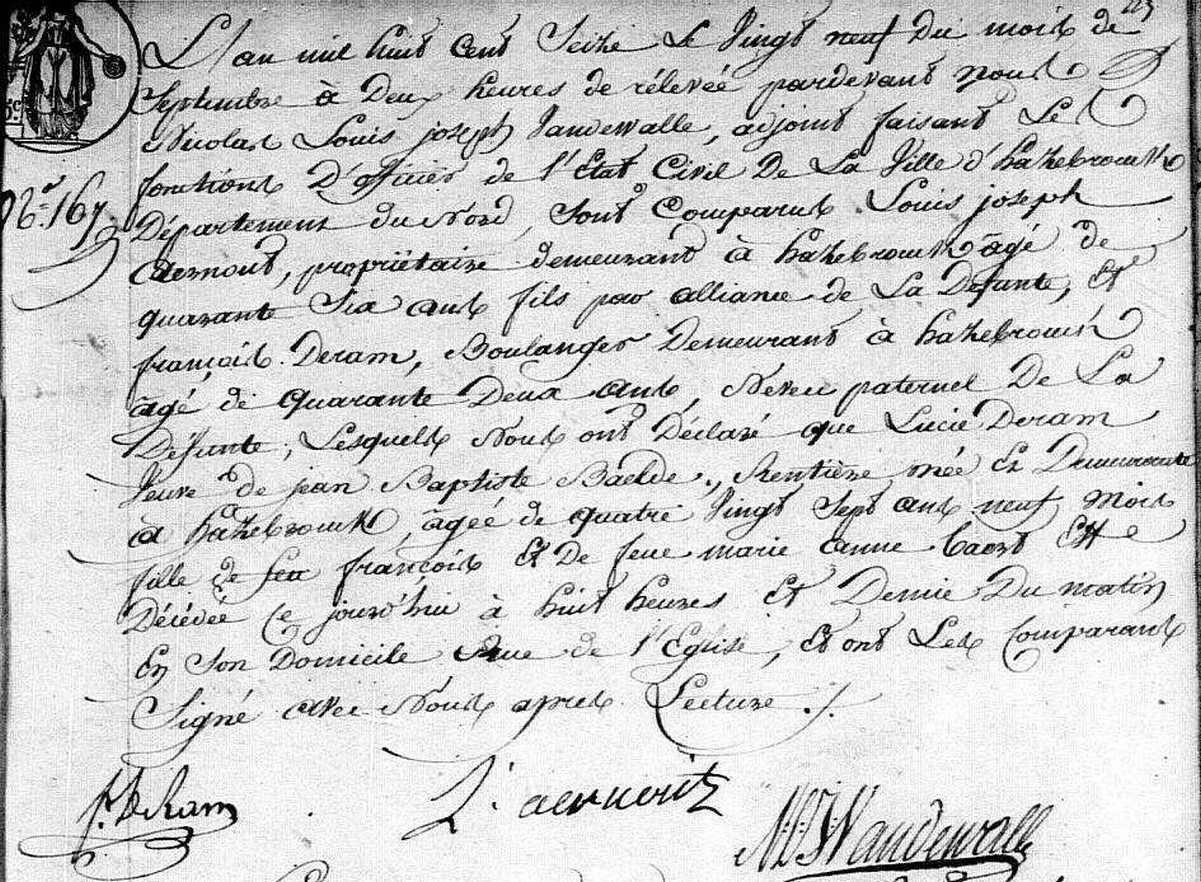 L'an mil huit cent Seize Le Vingt neuf Du mois de
Septembre à Deux heures de rélevée pardevant nous
Nicolas Louis joseph Vandewalle, adjoint faisant Les
N.º 167
fonctions D'officier de l'Etat Civil De La Ville d'hazebrouck
Département du Nord, Sont Comparus Louis joseph
aernout, propriétaire demeurant à hazebrouck âgé de
quarante Six ans fils par alliance de La Défunte, Et
françois Deram, Boulanger Demeurant à hazebrouck
âgé de Quarante Deux ans, Neveu paternel De La
Défunte, Lesquels Nous ont Déclaré que Lucie Deram
Veuve de jean Baptiste Baelde, Rentière née Et Demeurante
à hazebrouck, âgée de quatre Vingt Sept ans neuf mois
fille de feu françois Et De feue marie anne Est
Décédée Ce jourd'hui à huit heures Et Demie Du matin
En Son Domicile Rue de l'Eglise, Et ont Les Comparants
Signé avec Nous après Lecture ./.
f. Deram
L. aernout
NLJVandewalle